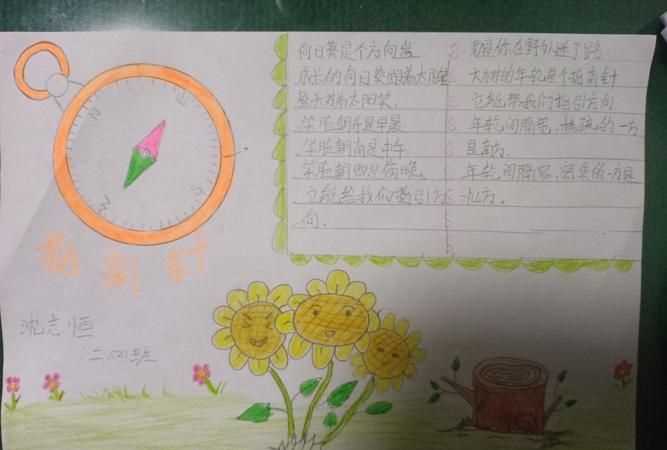 向日葵是个方向盘
成长的向日葵朝着太阳
笑脸朝东是早晨
笑脸朝南是中午
笑脸朝西是傍晚
它能给我们指引方
向。
要是你在野外迷了路
大树的年轮是个指南针
它能帮我们指引方向
年轮间隔宽,稀疏的一方
是南方
年轮间隔密,密集的一方是
北方。
指南针
沈志恒
二(四)班